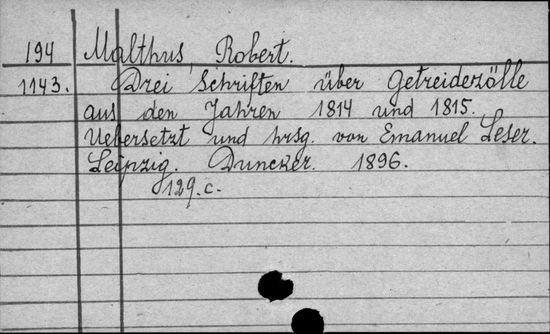 194 Malthus, Robert.
1143. Drei Schriften über Getreidezölle
aus den Jahren 1814 und 1815.
Uebersetzt und hrsg. von Emanuel Leser.
Leipzig. Duncker. 1896.
129.c.